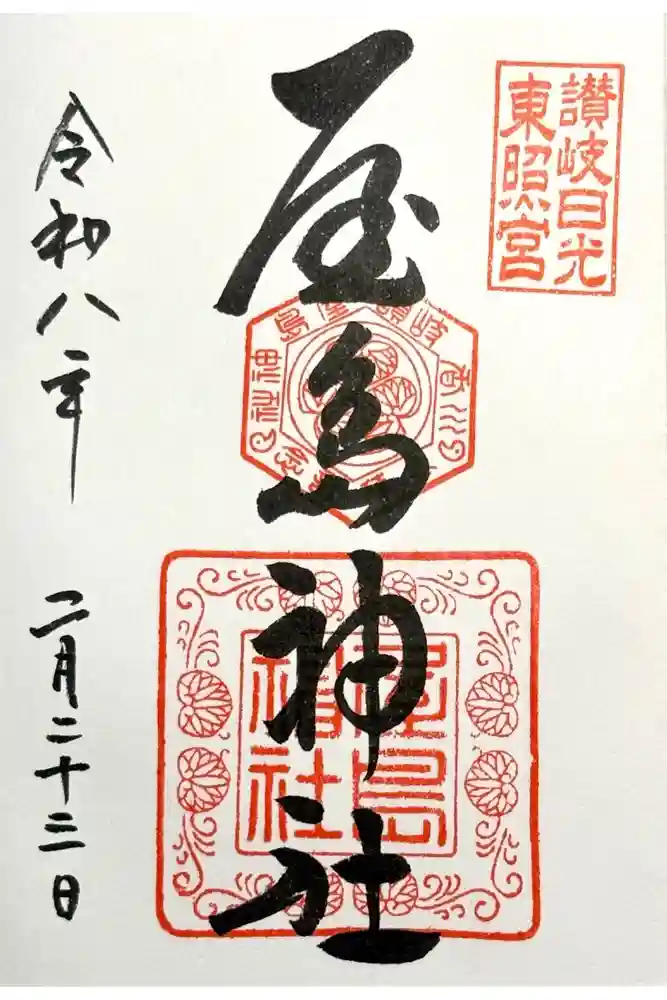 讃岐日光
東照宮
屋島神社
屋島
神社
令和八年 二月二十三日